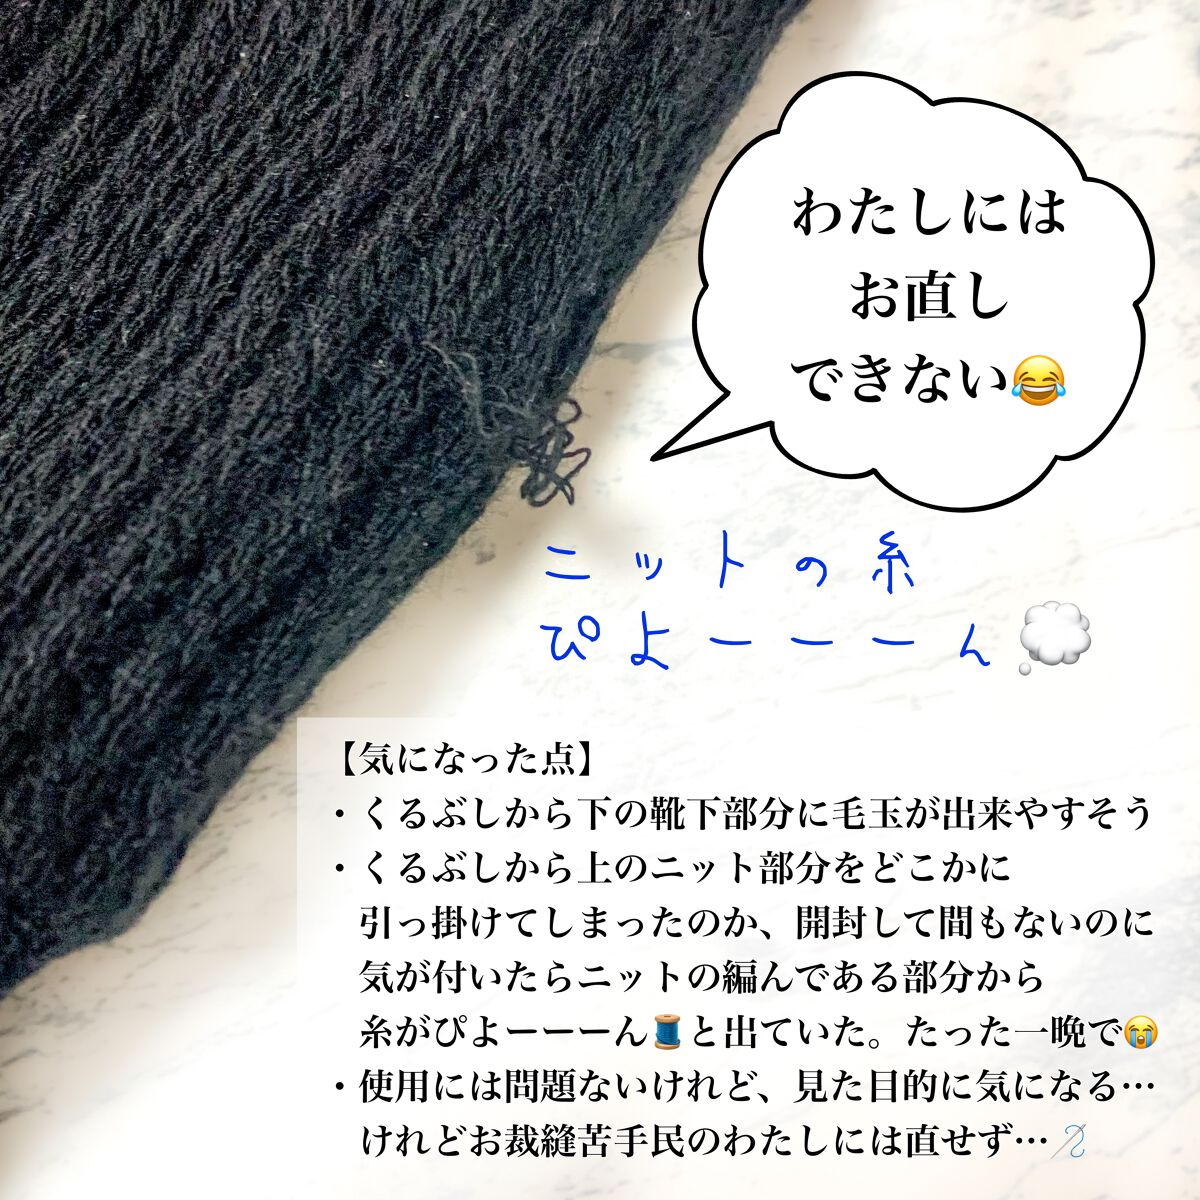 わたしには
お直し
できない😂
ニットの糸
ぴよーーーん💭
【気になった点】
・くるぶしから下の靴下部分に毛玉が出来やすそう
・くるぶしから上のニット部分をどこかに
引っ掛けてしまったのか、開封して間もないのに
気が付いたらニットの編んである部分から
糸がぴよーーーん🧵と出ていた。たった一晩で😭
・使用には問題ないけれど、見た目的に気になる…
けれどお裁縫苦手民のわたしには直せず…🪡